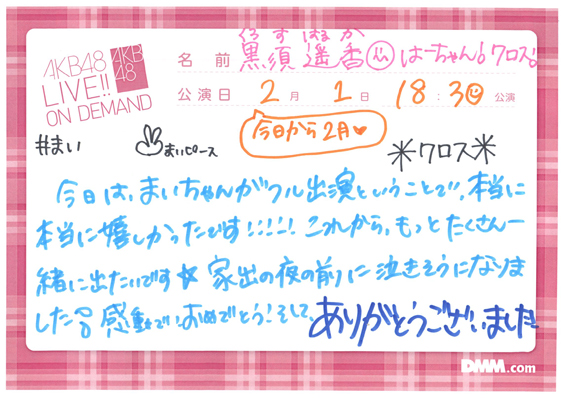 AKB48
LIVE!!
ON DEMAND
AKB
48
くろ す はる か
名前 黒須 遥香 はーちゃん。クロス。
公演日 2月 1日 18:30 公演
今日から2月♥
#まい
まいピース
＊クロス＊
今日は、まいちゃんがフル出演ということで、本当に
本当に嬉しかったです!!!!! これから、もっとたくさん一
緒に出たいです★ 家出の夜の前に泣きそうになりま
した 感動で。おめでとう!そして、ありがとうございました
DMM.com